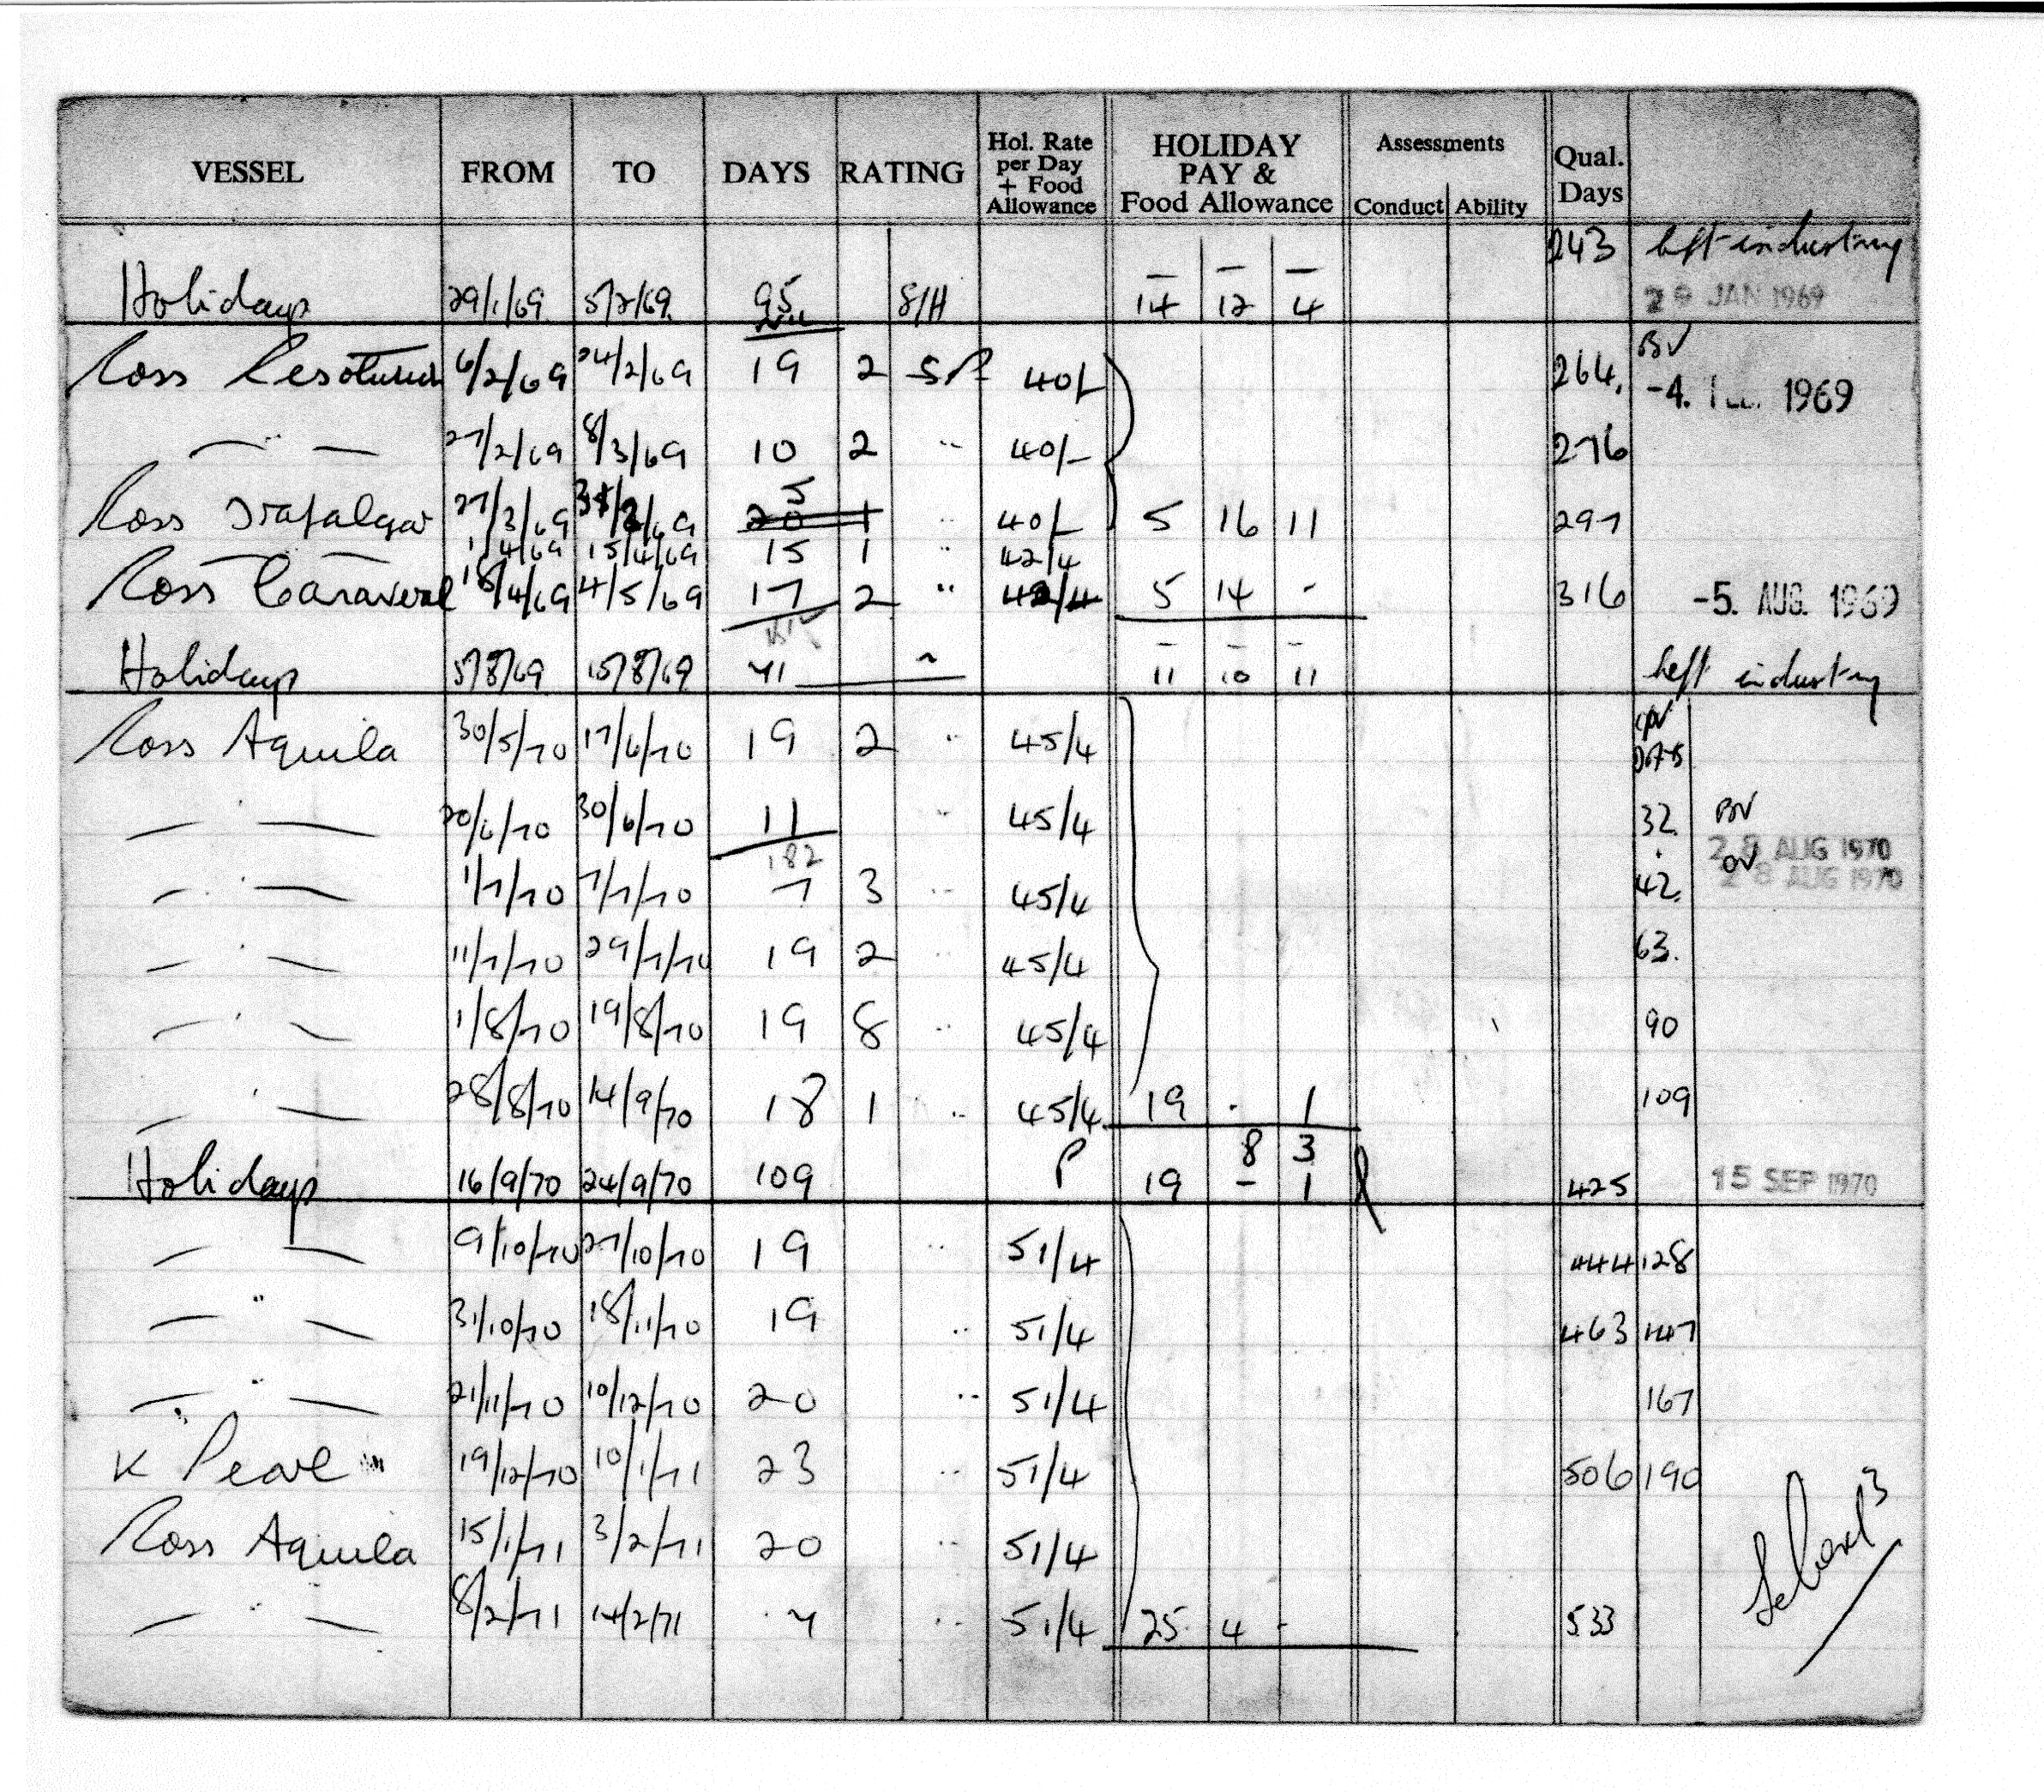 VESSEL FROM TO DAYS RATING Hol. Rate per Day + Food Allowance HOLIDAY PAY & Food Allowance Assessments Conduct Ability Qual. Days
243 left industry
Holidays 29/1/69 5/2/69 95 S/H 14 12 4 29 JAN 1969
Ross 6/2/69 24/2/69 19 2 40/- 264. BV -4. 1969
— " — 27/2/69 8/3/69 10 2 " 40/- 276
5
Ross Trafalgar 27/3/69 31/3/69 20 1 " 40/- 5 16 11 297
1/4/69 15/4/69 15 1 " 42/4
Ross Canaveral 18/4/69 4/5/69 17 2 " 42/4 5 14 - 316 -5. AUG. 1969
Holidays 5/8/69 15/8/69 " 11 10 11 left industry
Ross Aquila 30/5/70 17/6/70 19 2 " 45/4
— " — 20/6/70 30/6/70 11 " 45/4 32 BV 28 AUG 1970
182
— " — 1/7/70 7/7/70 7 3 " 45/4 42. OV 28 AUG 1970
— " — 11/7/70 29/7/70 19 2 " 45/4 63.
— " — 1/8/70 19/8/70 19 8 " 45/4 90
— " — 28/8/70 14/9/70 18 1 " 45/4 19 . 1 109
8 3
Holidays 16/9/70 24/9/70 109 P 19 - 1 425 15 SEP 1970
— " — 9/10/70 27/10/70 19 " 51/4 444 128
— " — 31/10/70 18/11/70 19 " 51/4 463 147
— " — 21/11/70 10/12/70 20 " 51/4 167
K Pearl 19/12/70 10/1/71 23 " 51/4 506 190
Ross Aquila 15/1/71 3/2/71 20 " 51/4
— " — 8/2/71 14/2/71 7 " 51/4 25 4 - 533